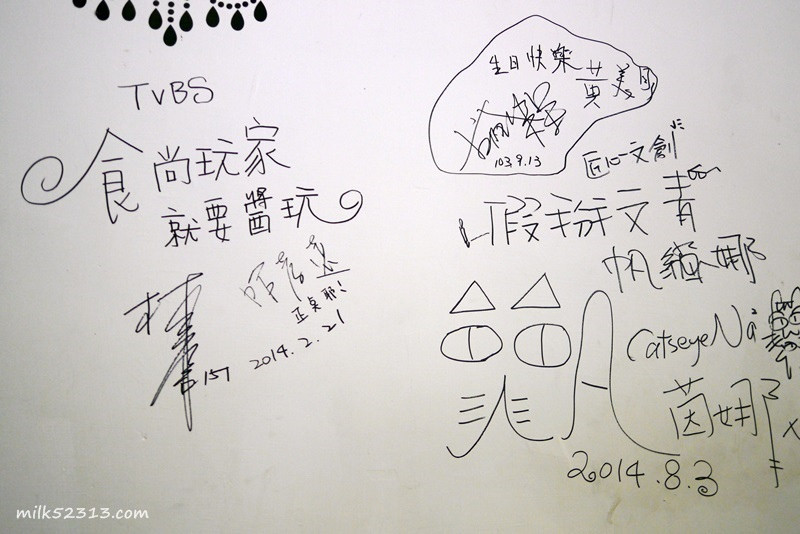 TVBS
食尚玩家
就要醬玩
正點耶!
2014.2.21
157
生日快樂
黃美
103.9.13
匠心文創
假掰文青
帆貓娜
CatseyeNa
茵娜
2014.8.3
milk52313.com